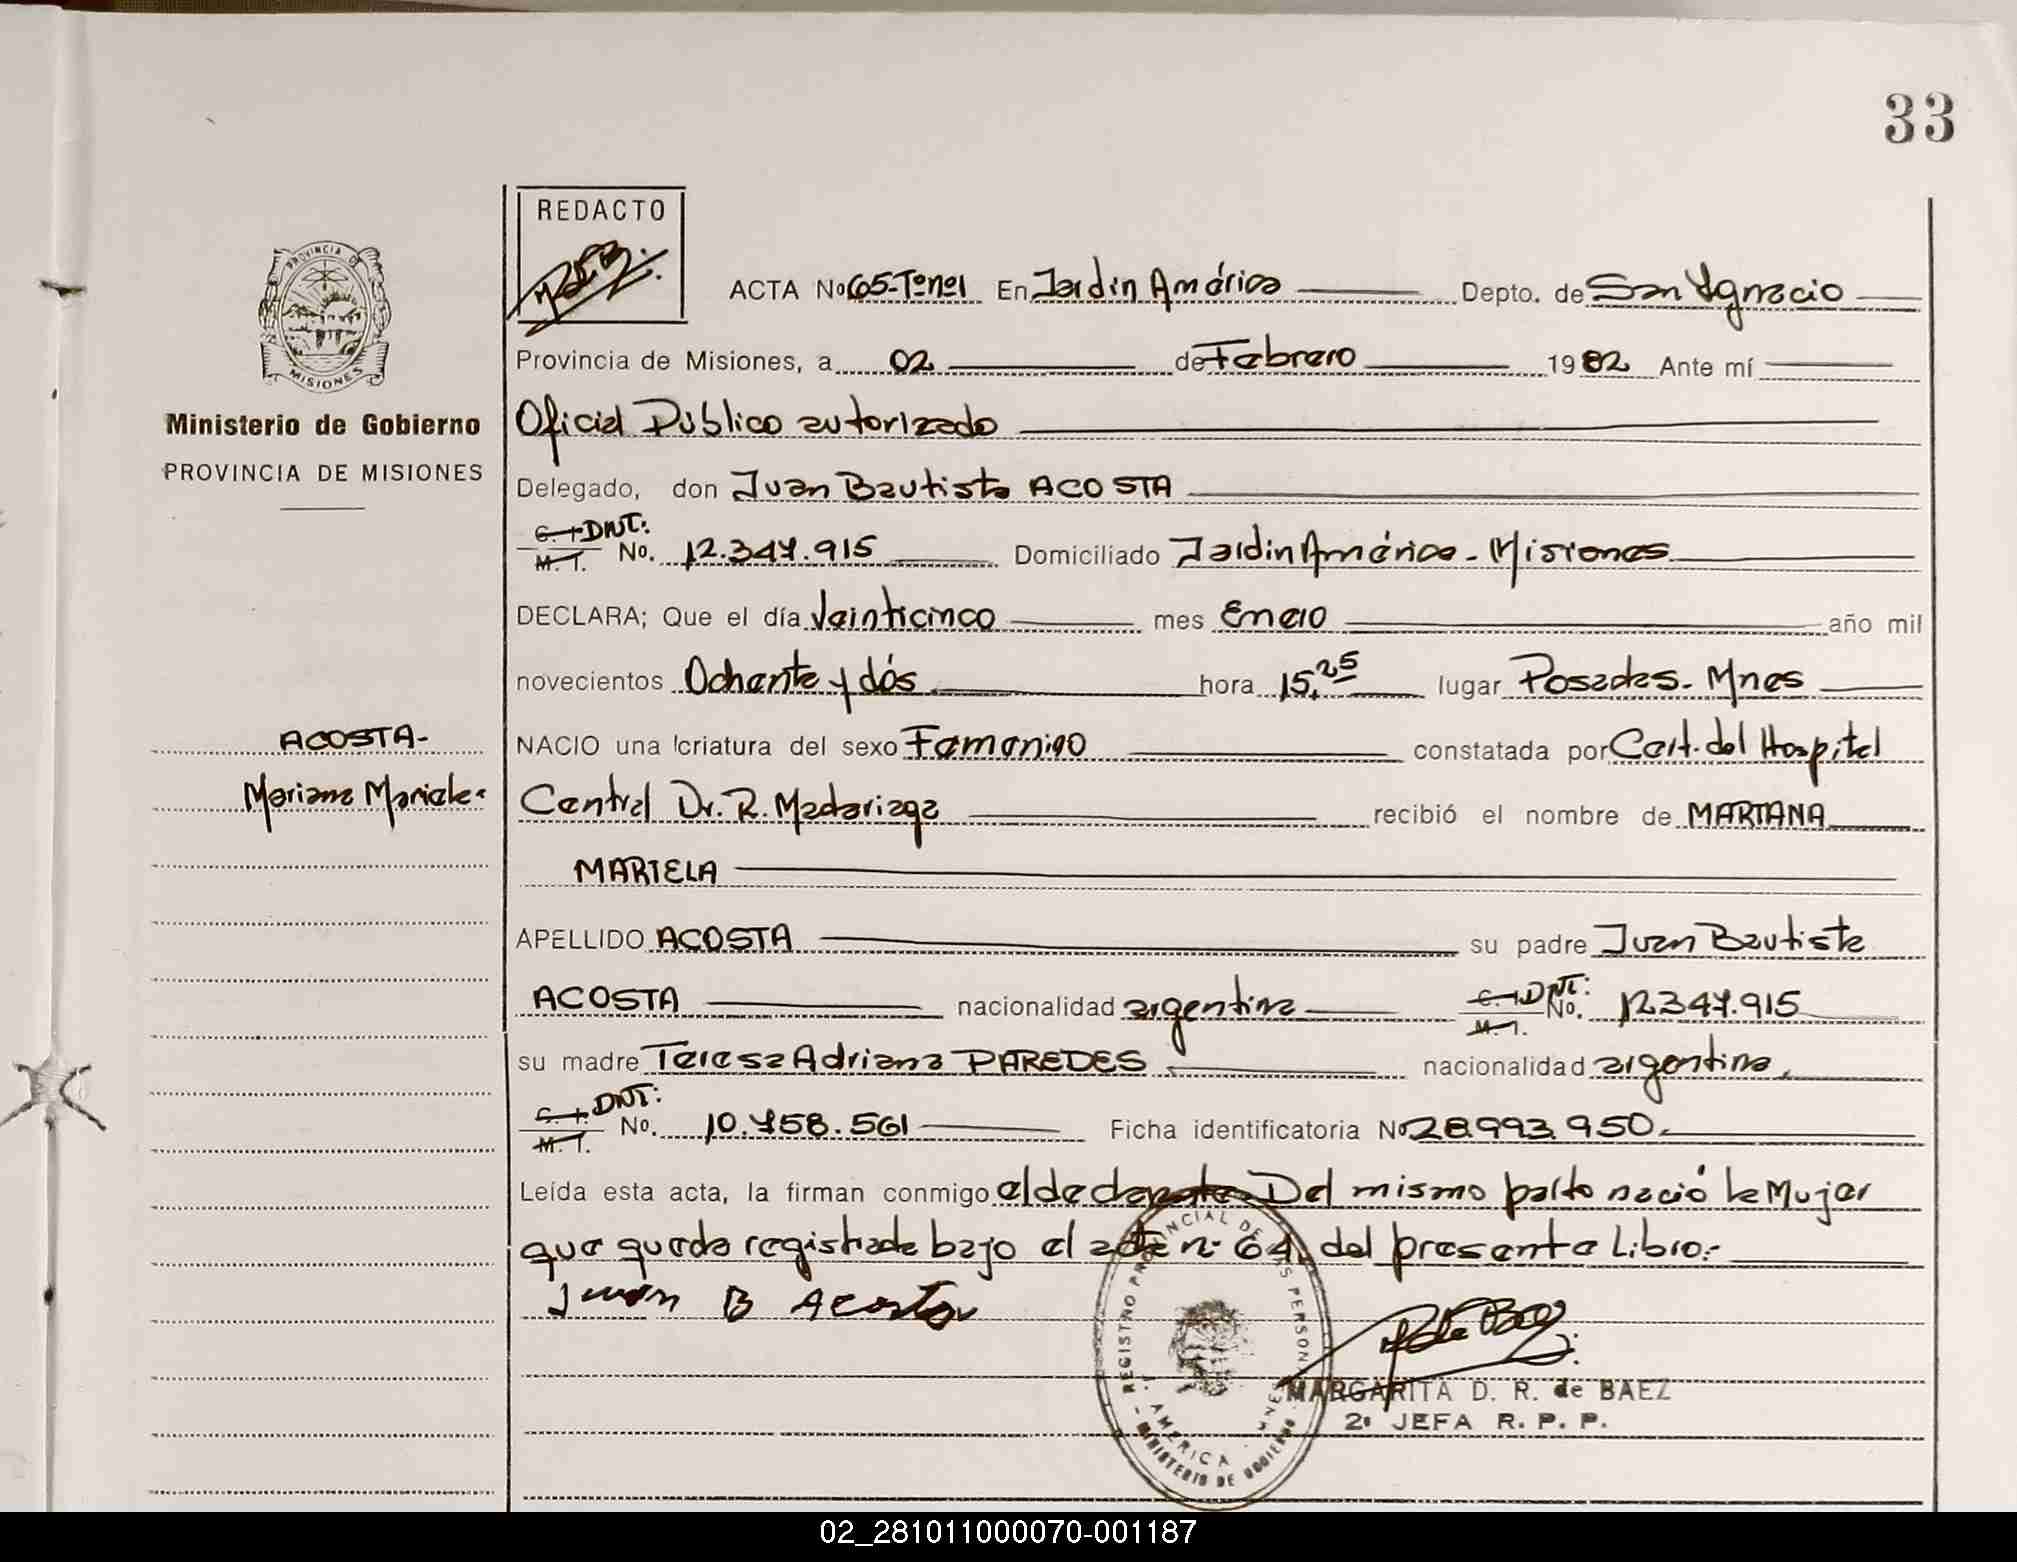 33
REDACTO
PROVINCIA DE
MISIONES
Ministerio de Gobierno
PROVINCIA DE MISIONES
ACTA No 65-Tºnº1 En Jardin América Depto. de San Ygnacio
Provincia de Misiones, a 02 de Febrero 1982 Ante mí
Oficial Público autorizado
Delegado, don Juan Bautista ACOSTA
C. I. DNI:
M. I. No. 12.347.915 Domiciliado Jardin América - Misiones
DECLARA; Que el día Veinticinco mes Enero año mil
novecientos Ochenta y dós hora 15,25 lugar Posadas - Mnes
ACOSTA-
NACIO una criatura del sexo Femenino constatada por Cert. del Hospital
Mariana Mariela
Central Dr. R. Madariaga recibió el nombre de MARIANA
MARIELA
APELLIDO ACOSTA su padre Juan Bautista
ACOSTA nacionalidad argentina C. I. DNI: M. I. No. 12347.915
su madre Teresa Adriana PAREDES nacionalidad argentina.
C. I. DNI:
M. I. No. 10.758.561 Ficha identificatoria No 28.993.950.
Leída esta acta, la firman conmigo el declarante. Del mismo parto nació la Mujer
que queda registrada bajo el acta nº 64, del presente Libro:-
Juan B Acosta
REGISTRO PROVINCIAL DE LAS PERSONAS
J. AMERICA - MNES
MINISTERIO DE GOBIERNO
MARGARITA D. R. de BAEZ
2ª JEFA R. P. P.
02_281011000070-001187